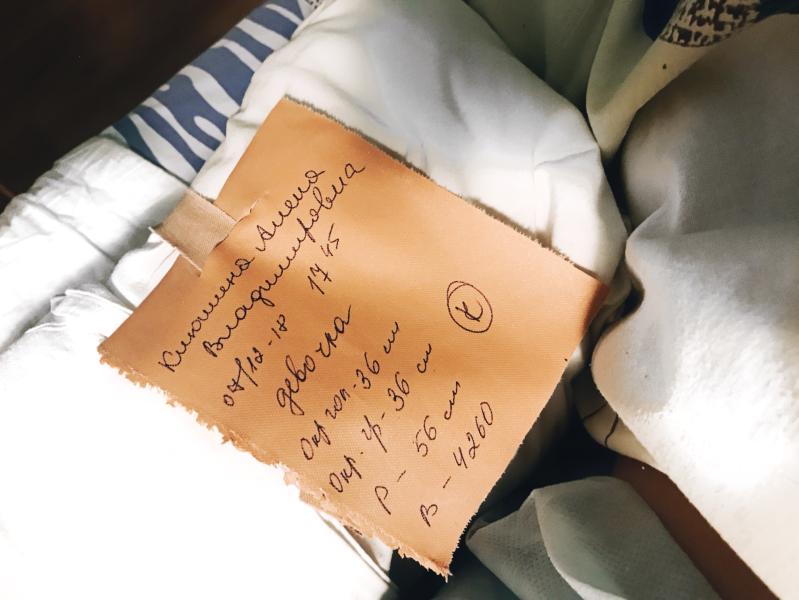 Клюшина Алена
Владимировна
07/12-18 17 45
девочка
Окр гол-36 см
Окр. гр-36 см
Р - 56 см
В - 4260
К